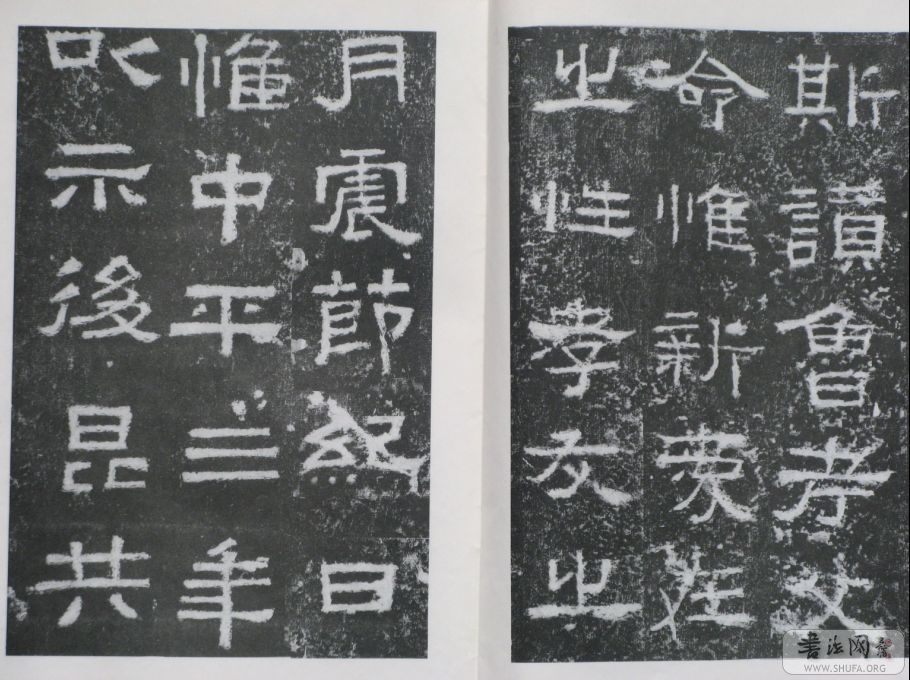 斯讚魯考父
命惟新在
之性孝友之
月震節紀日
惟中平三年
以示後昆共
書法网
WWW.SHUFA.ORG